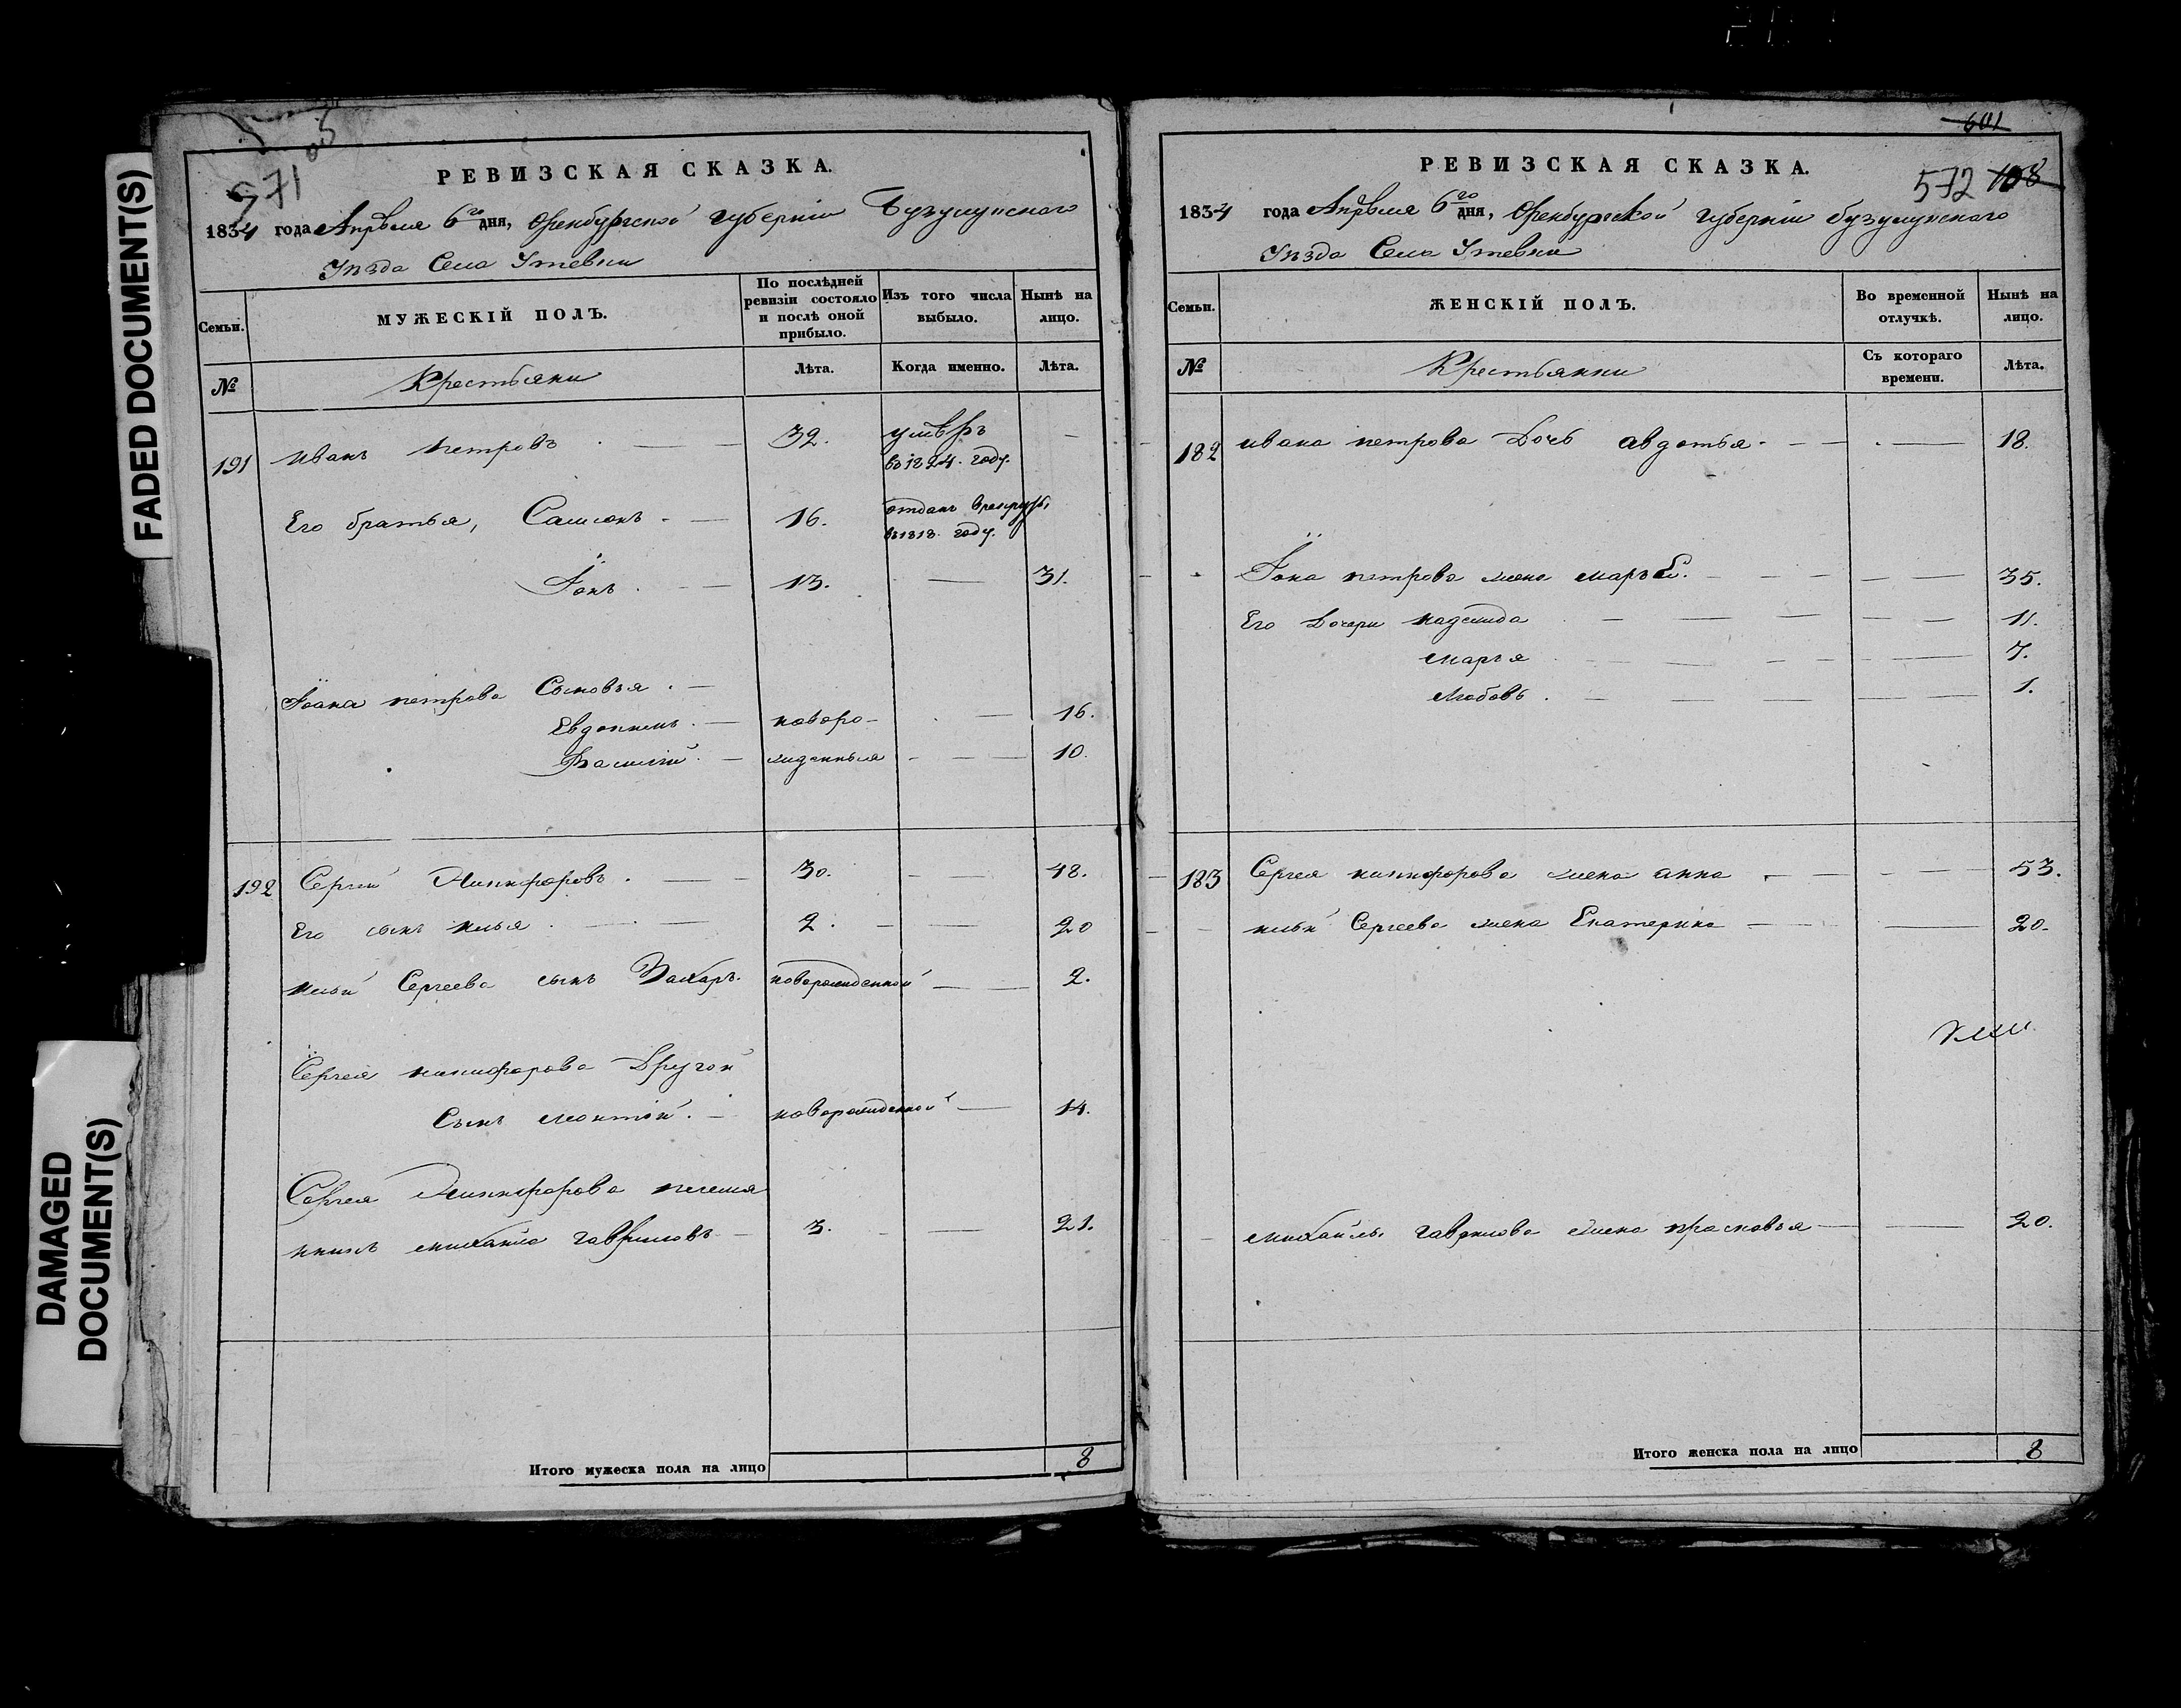 FADED DOCUMENT(S)
DAMAGED
DOCUMENT(S)
571
РЕВИЗСКАЯ СКАЗКА.
1834 года Апреля 6го дня, Оренбургской губернии Бузулукского
Уезда Села Утевки
Семьи.
МУЖЕСКІЙ ПОЛЪ.
По послѣдней ревизіи состояло и послѣ оной прибыло.
Изъ того числа выбыло.
Нынѣ на лицо.
№
Крестьяни
Лѣта.
Когда именно.
Лѣта.
191 иванъ петровъ 32. умеръ
въ 1824. году.
Его братья, Самсонъ 16. отданъ врекруты,
въ 1818. году.
Іонъ 13. 31.
Іоана петрова Сыновья
Евдокимъ новоро- 16.
Василій жденныя 10.
192 Сергей Никифоровъ 30. 48.
Его сынъ илья 2. 20
ильи Сергеева сынъ Захаръ новорожденной 2.
Сергея никифорова Другой
Сынъ леонтий новорожденной 14.
Сергея Никифорова племя
нникъ михаила гавриловъ 3. 21.
Итого мужеска пола на лицо 8
601
572 108
РЕВИЗСКАЯ СКАЗКА.
1834 года Апреля 6го дня, Оренбургской губернии бузулукского
Уезда Села Утевки
Семьи.
ЖЕНСКІЙ ПОЛЪ.
Во временной отлучкѣ.
Нынѣ на лицо.
№
Крестьянки
Съ котораго времени.
Лѣта.
182 ивана петрова Дочь авдотья 18.
Іона петрова жена 35.
Его Дочери надежда 11.
марья 7.
Любовь 1.
183 Сергея никифорова жена анна 53.
ильи Сергеева жена Екатерина 20.
михайлы гаврилова жена прасковья 20.
Итого женска пола на лицо 8